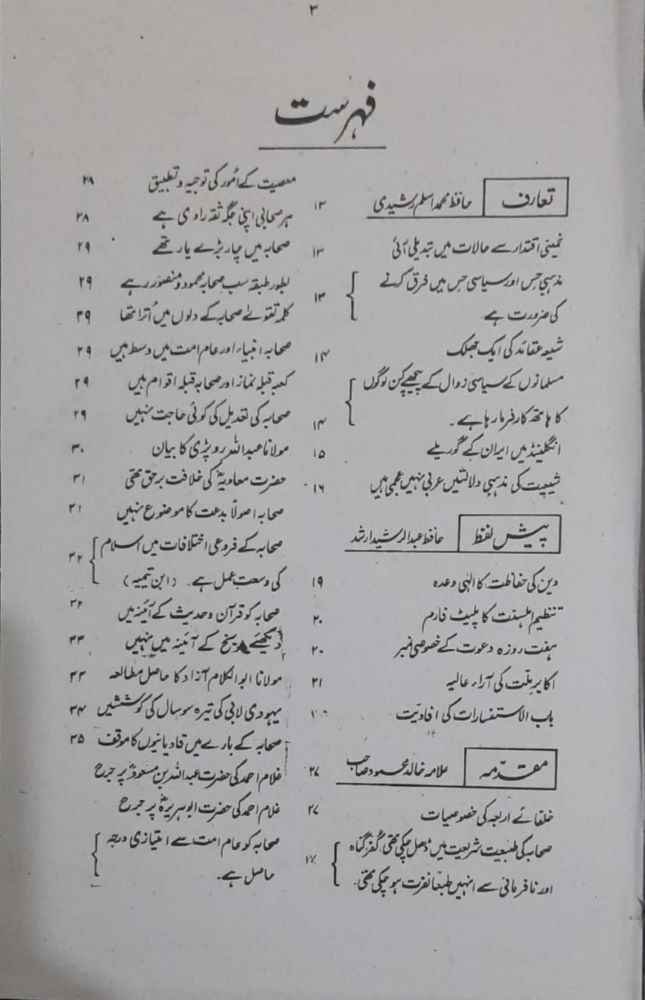 ۳
فہرست
تعارف حافظ محمد اسلم رشیدی ۱۳
خمینی اقتدار سے حالات میں تبدیلی آئی ۱۳
مذہبی حِس اور سیاسی حِس میں فرق کرنے
کی ضرورت ہے ۱۳
شیعہ عقائد کی ایک جھلک ۱۴
مسلمانوں کے سیاسی زوال کے پیچھے کن لوگوں
کا ہاتھ کارفرما رہا ہے۔ ۱۴
انگلینڈ میں ایران کے گوریلے ۱۵
شیعیت کی مذہبی دلالتیں عربی نہیں عجمی ہیں ۱۶
پیش لفظ حافظ عبدالرشید ارشد
دین کی حفاظت کا الٰہی وعدہ ۱۹
تنظیم اہلسنت کا پلیٹ فارم ۲۰
ہفت روزہ دعوت کے خصوصی نمبر ۲۰
اکابر ملت کی آراء عالیہ ۲۱
باب الاستفسارات کی افادیت
مقدمہ علامہ خالد محمود صاحب ۲۷
خلفائے اربعہ کی خصوصیات ۲۷
صحابہ کی طبیعت شریعت میں ڈھل چکی تھی، کفر گناہ
اور نافرمانی سے انہیں طبعاً نفرت ہو چکی تھی۔
معصیت کے اُمور کی توجیہ و تطبیق ۲۸
ہر صحابی اپنی جگہ ثقہ راوی ہے ۲۸
صحابہ میں چار بڑے یار تھے ۲۹
بطور طبقہ سب صحابہ محمود و منصور رہے ۲۹
کلمہ تقوٰے صحابہ کے دلوں میں اُترا تھا ۲۹
صحابہ انبیاء اور عام امت میں وسط ہیں ۲۹
کعبہ قبلہ نماز اور صحابہ قبلہ اقوام ہیں ۲۹
صحابہ کی تعدیل کی کوئی حاجت نہیں ۲۹
مولانا عبداللہ روپڑی کا بیان ۳۰
حضرت معاویہؓ کی خلافت برحق تھی ۳۱
صحابہ اصولاً بدعت کا موضوع نہیں ۳۱
صحابہ کے فروعی اختلافات میں اسلام
کی وسعت عمل ہے۔ (ابن تیمیہ) ۳۲
صحابہ کو قرآن و حدیث کے آئینہ میں ۳۲
دیکھئے تاریخ کے آئینہ میں نہیں ۳۳
مولانا ابوالکلام آزاد کا حاصل مطالعہ ۳۳
یہودی لابی کی تیرہ سو سال کی کوششیں ۳۴
صحابہ کے بارے میں قادیانیوں کا موقف ۳۵
غلام احمد کی حضرت عبداللہ بن مسعودؓ پر جرح
غلام احمد کی حضرت ابوہریرہؓ پر جرح
صحابہ کو عام امت سے امتیازی درجہ
حاصل ہے۔